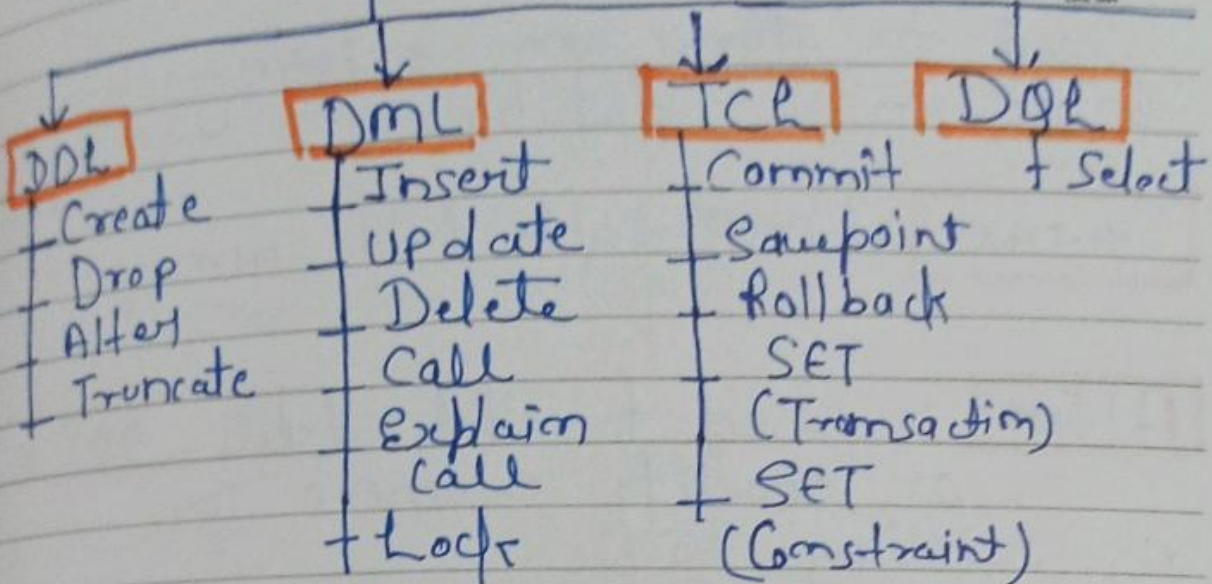 DDL
Create
Drop
Alter
Truncate
DML
Insert
Update
Delete
Call
Explain
Call
Lock
TCL
Commit
Savepoint
Rollback
SET
(Transaction)
SET
(Constraint)
DQL
Select